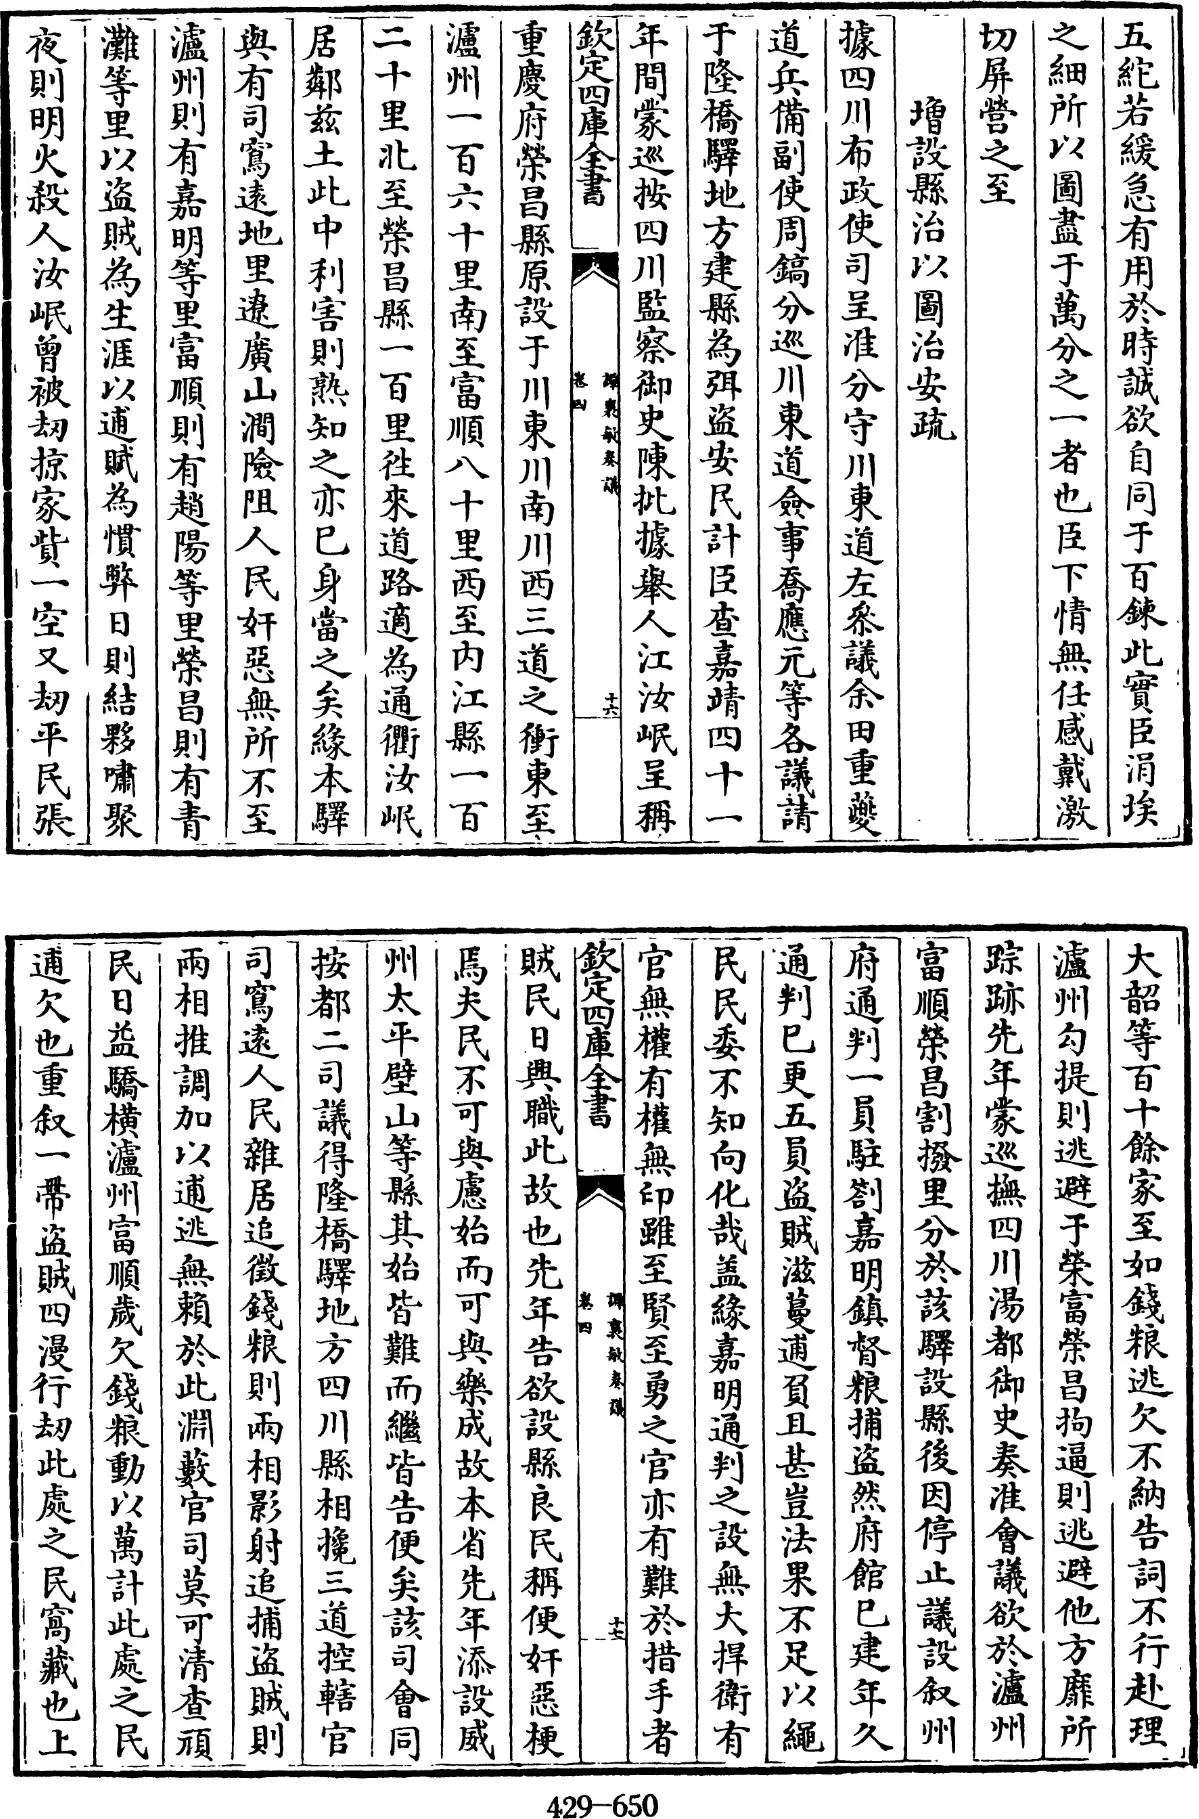 五紽若緩急有用於時誠欲自同于百鍊此實臣涓埃
之細所以圖盡于萬分之一者也臣下情無任感戴激
切屏營之至
增設縣治以圖治安疏
據四川布政使司呈准分守川東道左叅議余田重夔
道兵備副使周鎬分巡川東道僉事喬應元等各議請
于隆橋驛地方建縣為弭盜安民計臣查嘉靖四十一
年間蒙巡按四川監察御史陳批據舉人江汝岷呈稱
欽定四庫全書
譚襄敏奏議
卷四
十六
重慶府榮昌縣原設于川東川南川西三道之衝東至
瀘州一百六十里南至富順八十里西至内江縣一百
二十里北至榮昌縣一百里徃來道路適為通衢汝岷
居鄰兹土此中利害則熟知之亦已身當之矣緣本驛
與有司寫遠地里遼廣山澗險阻人民奸惡無所不至
瀘州則有嘉明等里富順則有趙陽等里榮昌則有青
灘等里以盜賊為生涯以逋賦為慣弊日則結夥嘯聚
夜則明火殺人汝岷曾被刼掠家貲一空又刼平民張
大韶等百十餘家至如錢粮逃欠不納告詞不行赴理
瀘州勾提則逃避于榮富榮昌拘逼則逃避他方靡所
踪跡先年蒙巡撫四川湯都御史奏准會議欲於瀘州
富順榮昌割撥里分於該驛設縣後因停止議設叙州
府通判一員駐劄嘉明鎮督粮捕盜然府館已建年久
通判已更五員盜賊滋蔓逋負且甚豈法果不足以繩
民民委不知向化哉盖緣嘉明通判之設無大捍衛有
官無權有權無印雖至賢至勇之官亦有難於措手者
欽定四庫全書
譚襄敏奏議
卷四
十七
賊民日興職此故也先年告欲設縣良民稱便奸惡梗
焉夫民不可與慮始而可與樂成故本省先年添設威
州太平壁山等縣其始皆難而繼皆告便矣該司會同
按都二司議得隆橋驛地方四川縣相攙三道控轄官
司寫遠人民雜居追徵錢粮則兩相影射追捕盜賊則
兩相推調加以逋逃無賴於此淵藪官司莫可清查頑
民日益驕橫瀘州富順歲欠錢粮動以萬計此處之民
逋欠也重叙一帶盜賊四漫行刼此處之民窩藏也上
429—650